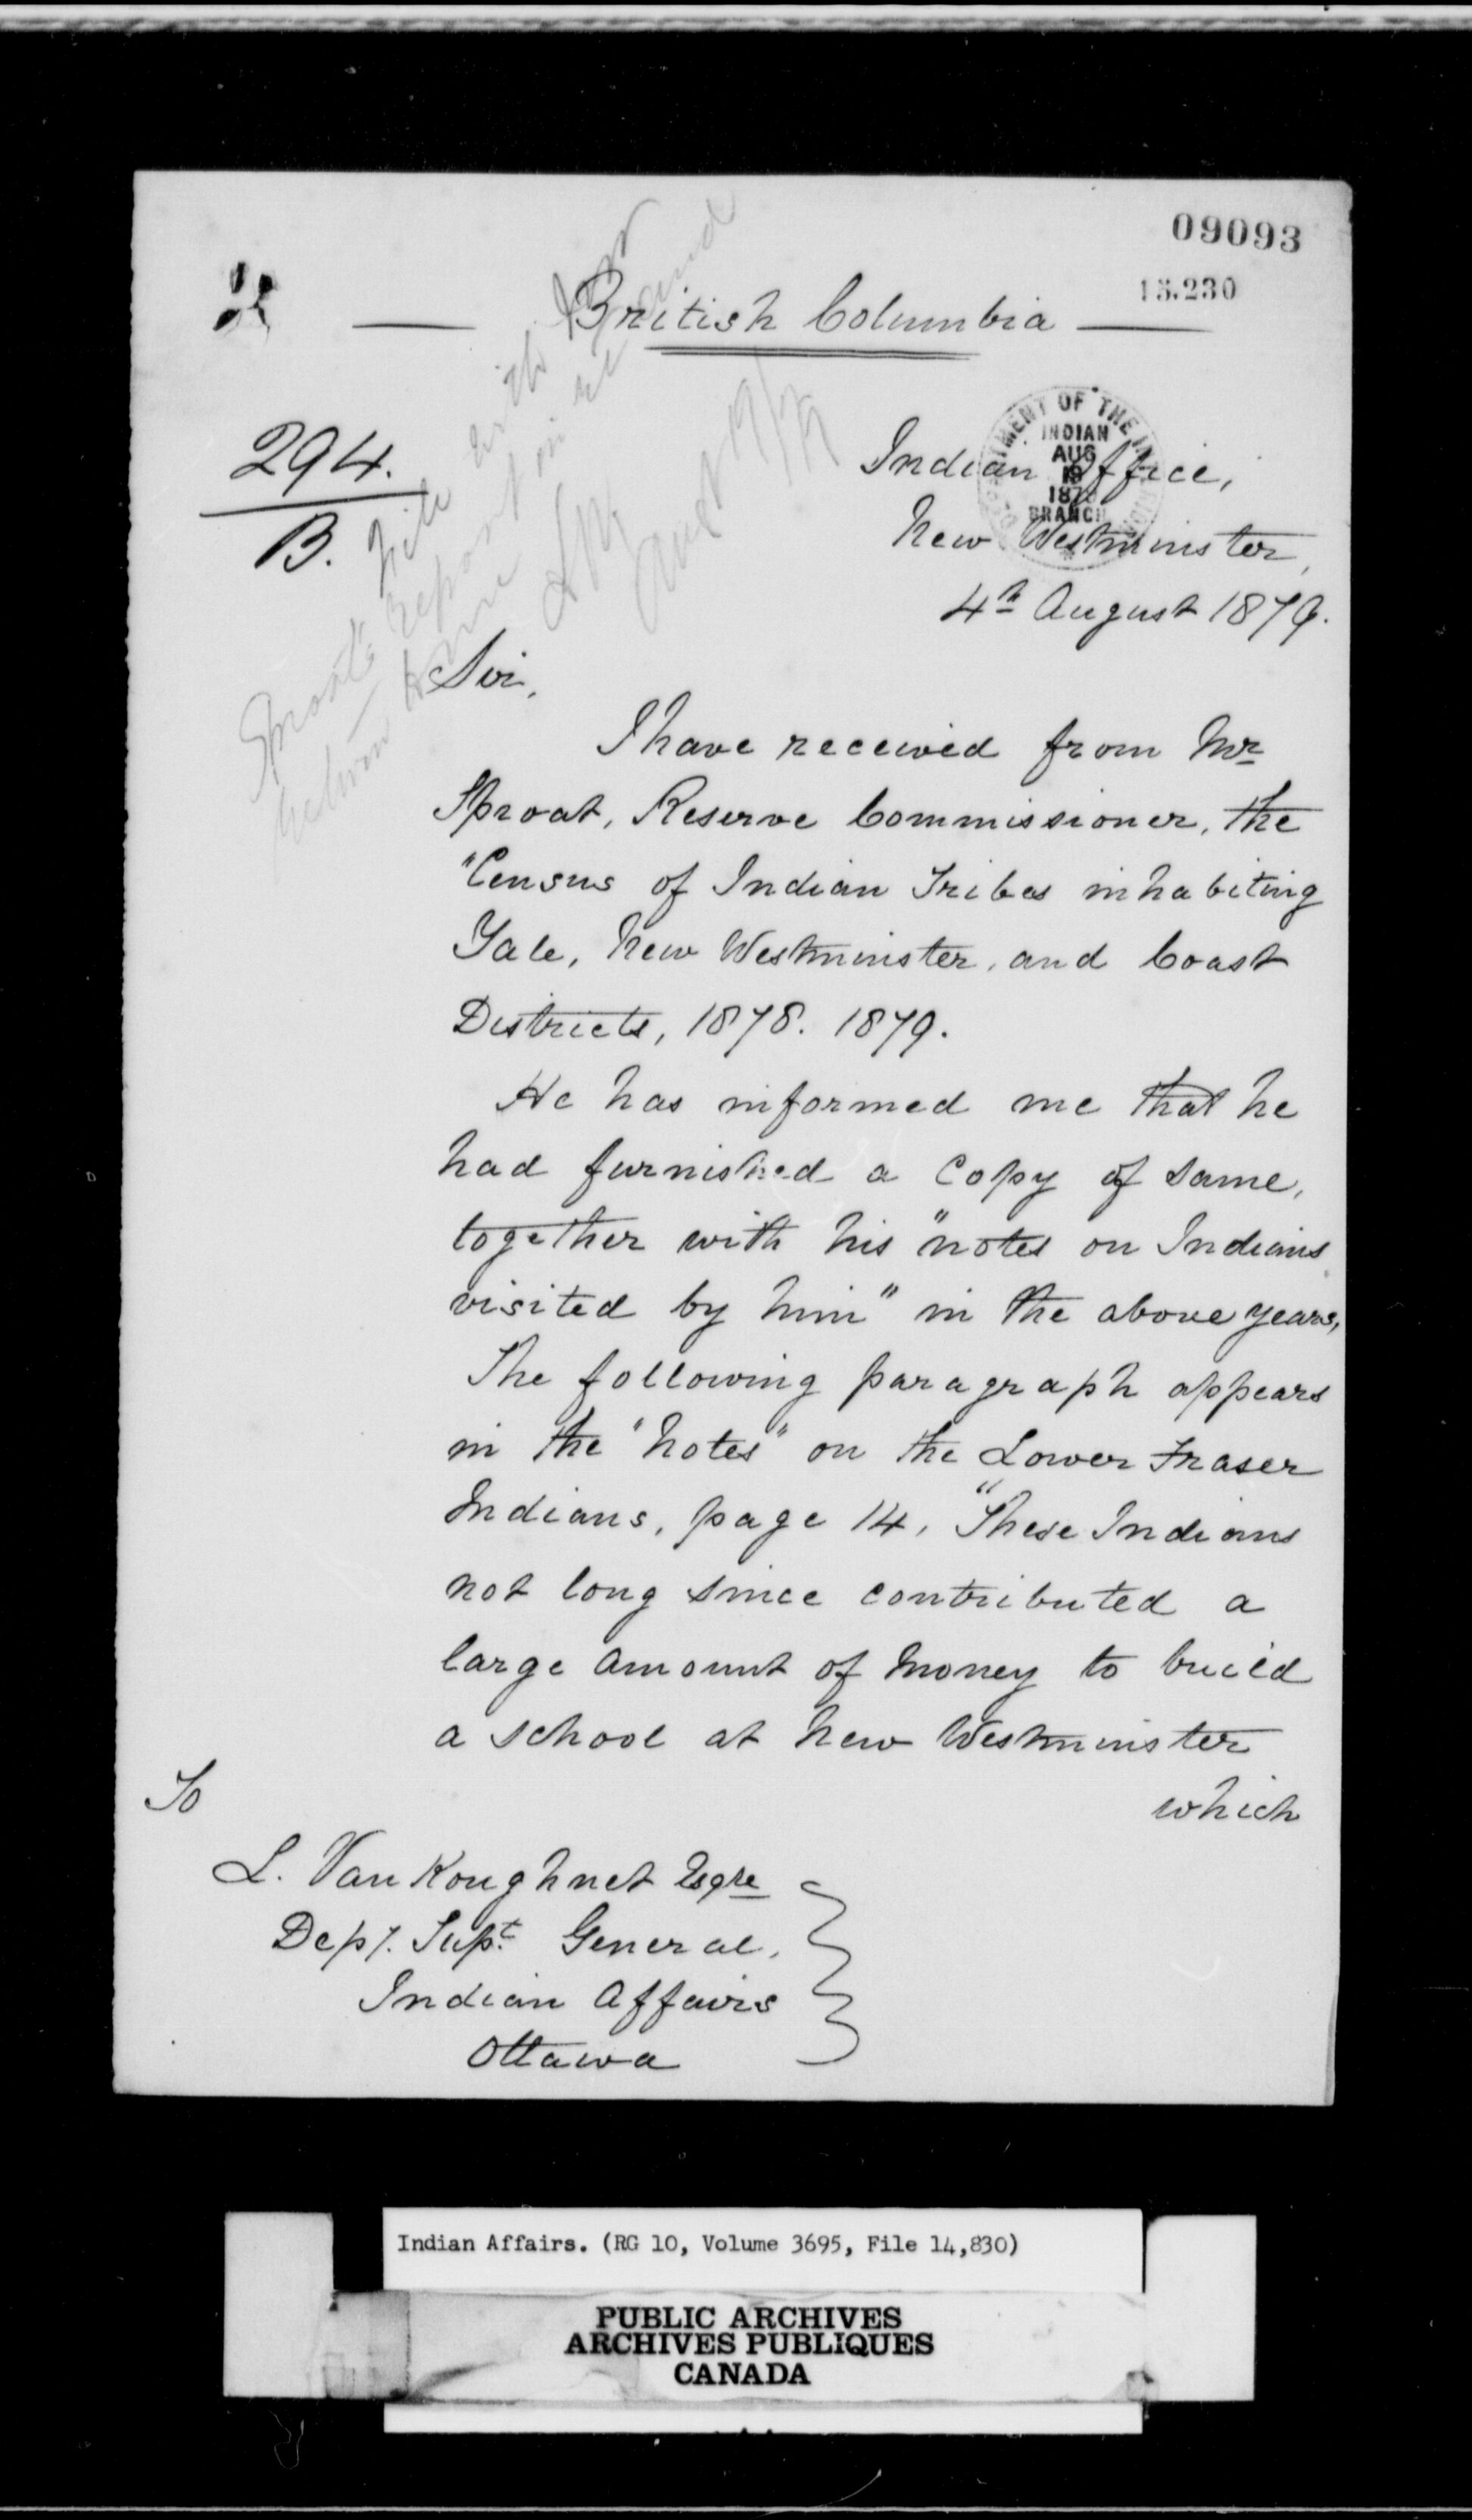 09093
15.230
British Columbia
294.
B.
DEPARTMENT OF THE INTERIOR
INDIAN
AUG
19
1879
BRANCH
Indian Office,
New Westminster,
4th August 1879.
Sir,
I have received from Mr
Sproat, Reserve Commissioner, the
"Census of Indian Tribes inhabiting
Yale, New Westminster, and Coast
Districts, 1878. 1879.
He has informed me that he
had furnished a Copy of same,
together with his "notes on Indians
visited by him" in the above years,
The following paragraph appears
in the "Notes" on the Lower Fraser
Indians, page 14, "These Indians
not long since contributed a
large amount of money to build
a school at New Westminster
which
To
L. VanKoughnet Esqre
Depy. Supt. General,
Indian Affairs
Ottawa
File with
Sproat's report
Aug 19/79
Indian Affairs. (RG 10, Volume 3695, File 14,830)
PUBLIC ARCHIVES
ARCHIVES PUBLIQUES
CANADA